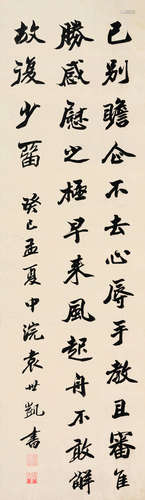 已别瞻企不去心辱手教且審佳
勝感慰之極早来風起舟不敢解
故復少留
癸巳孟夏中浣袁世凱書